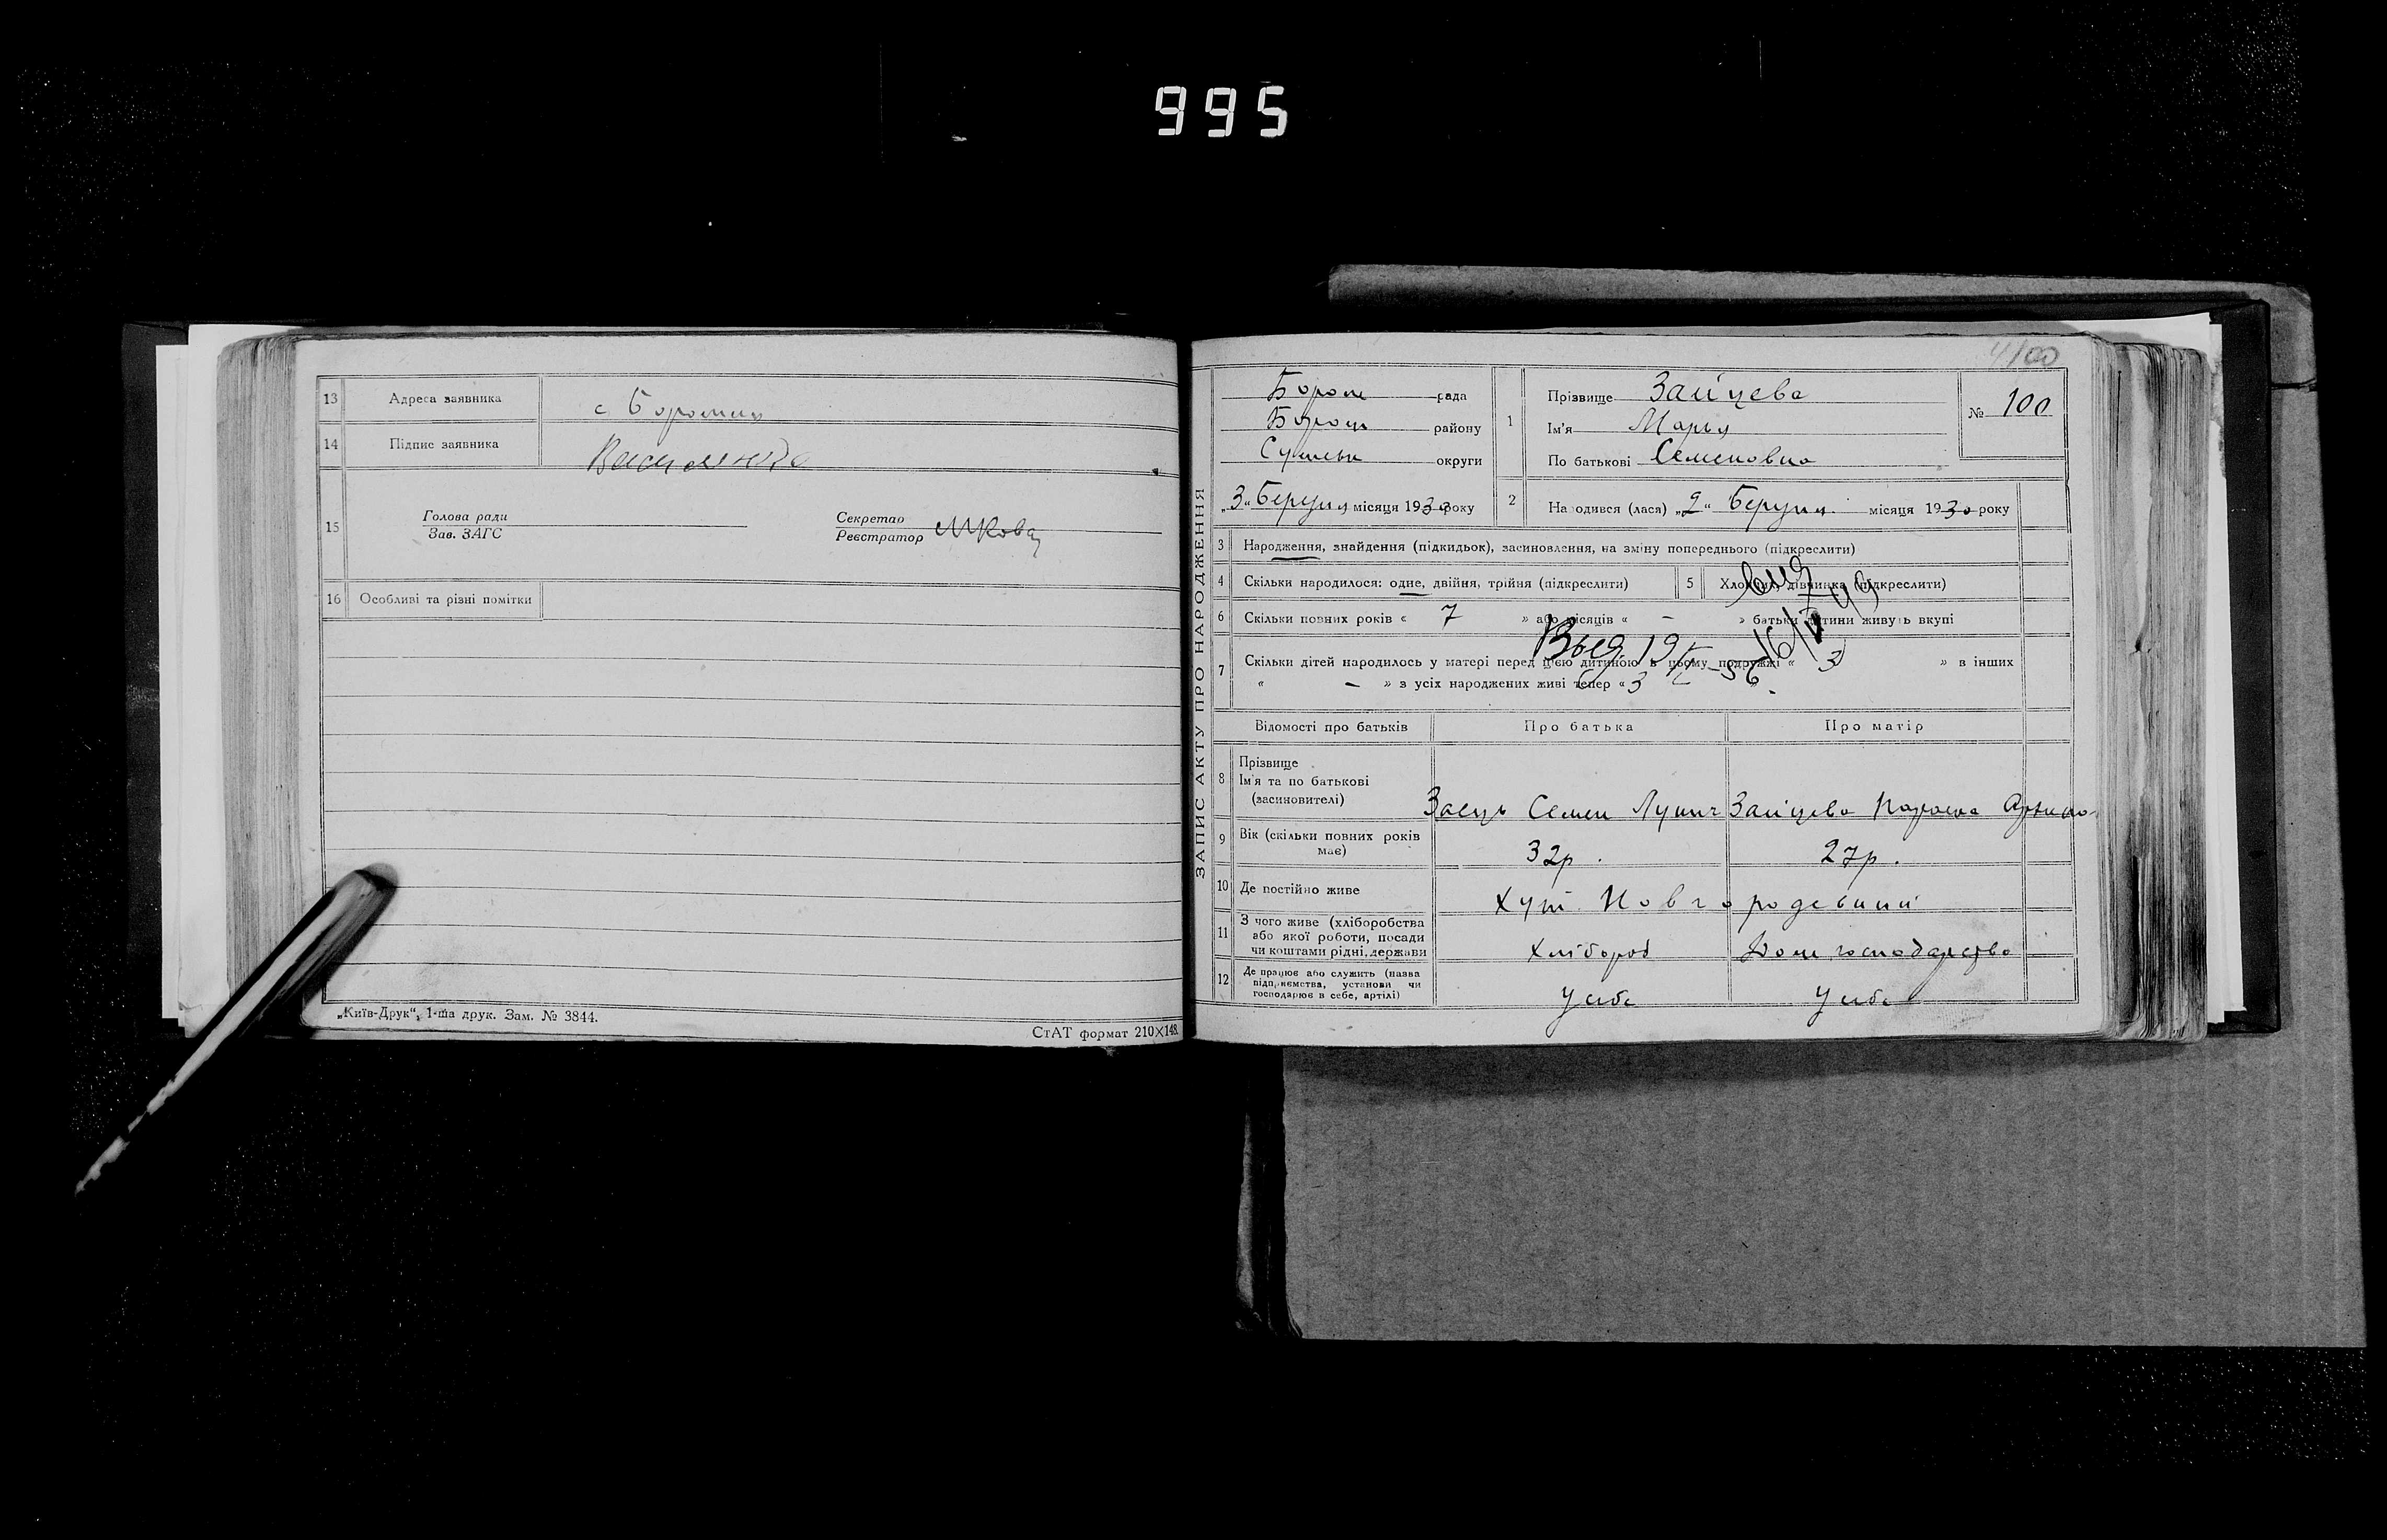 995
13 Адреса заявника с Боромля
14 Підпис заявника
15 Голова ради
Зав. ЗАГС
Секретар
Реєстратор МКовал
16 Особливі та різні помітки
„Київ-Друк“, 1-ша друк. Зам. № 3844.
СтАТ формат 210×148.
ЗАПИС АКТУ ПРО НАРОДЖЕННЯ
100
Боромл рада
Боромл району
Сумськ округи
„3“ Березня місяця 1930 року
1 Прізвище Зайцева
Ім'я Марья
По батькові Семеновна
№ 100
2 Народився (лася) „2“ Березня місяця 1930 року
3 Народження, знайдення (підкидьок), засиновлення, на зміну попереднього (підкреслити)
4 Скільки народилося: одне, двійня, трійня (підкреслити)
5 Хлопчик, дівчинка (підкреслити)
6 Скільки повних років « 7 » або місяців « – » батьки дитини живуть вкупі
7 Скільки дітей народилось у матері перед цією дитиною в цьому подружжі « 3 » в інших
« – » з усіх народжених живі тепер « 3
Выд.
Відомості про батьків Про батька Про матір
8 Прізвище
Ім'я та по батькові
(засиновителі)
Заець Семен Зайцева
9 Вік (скільки повних років
має)
32р. 27р.
10 Де постійно живе Хут.
11 З чого живе (хліборобства
або якої роботи, посади
чи коштами рідні, держави
Хлібороб Дом. господарство
12 Де працює або служить (назва
підприємства, установи чи
господарює в себе, артілі)
У себе У себе